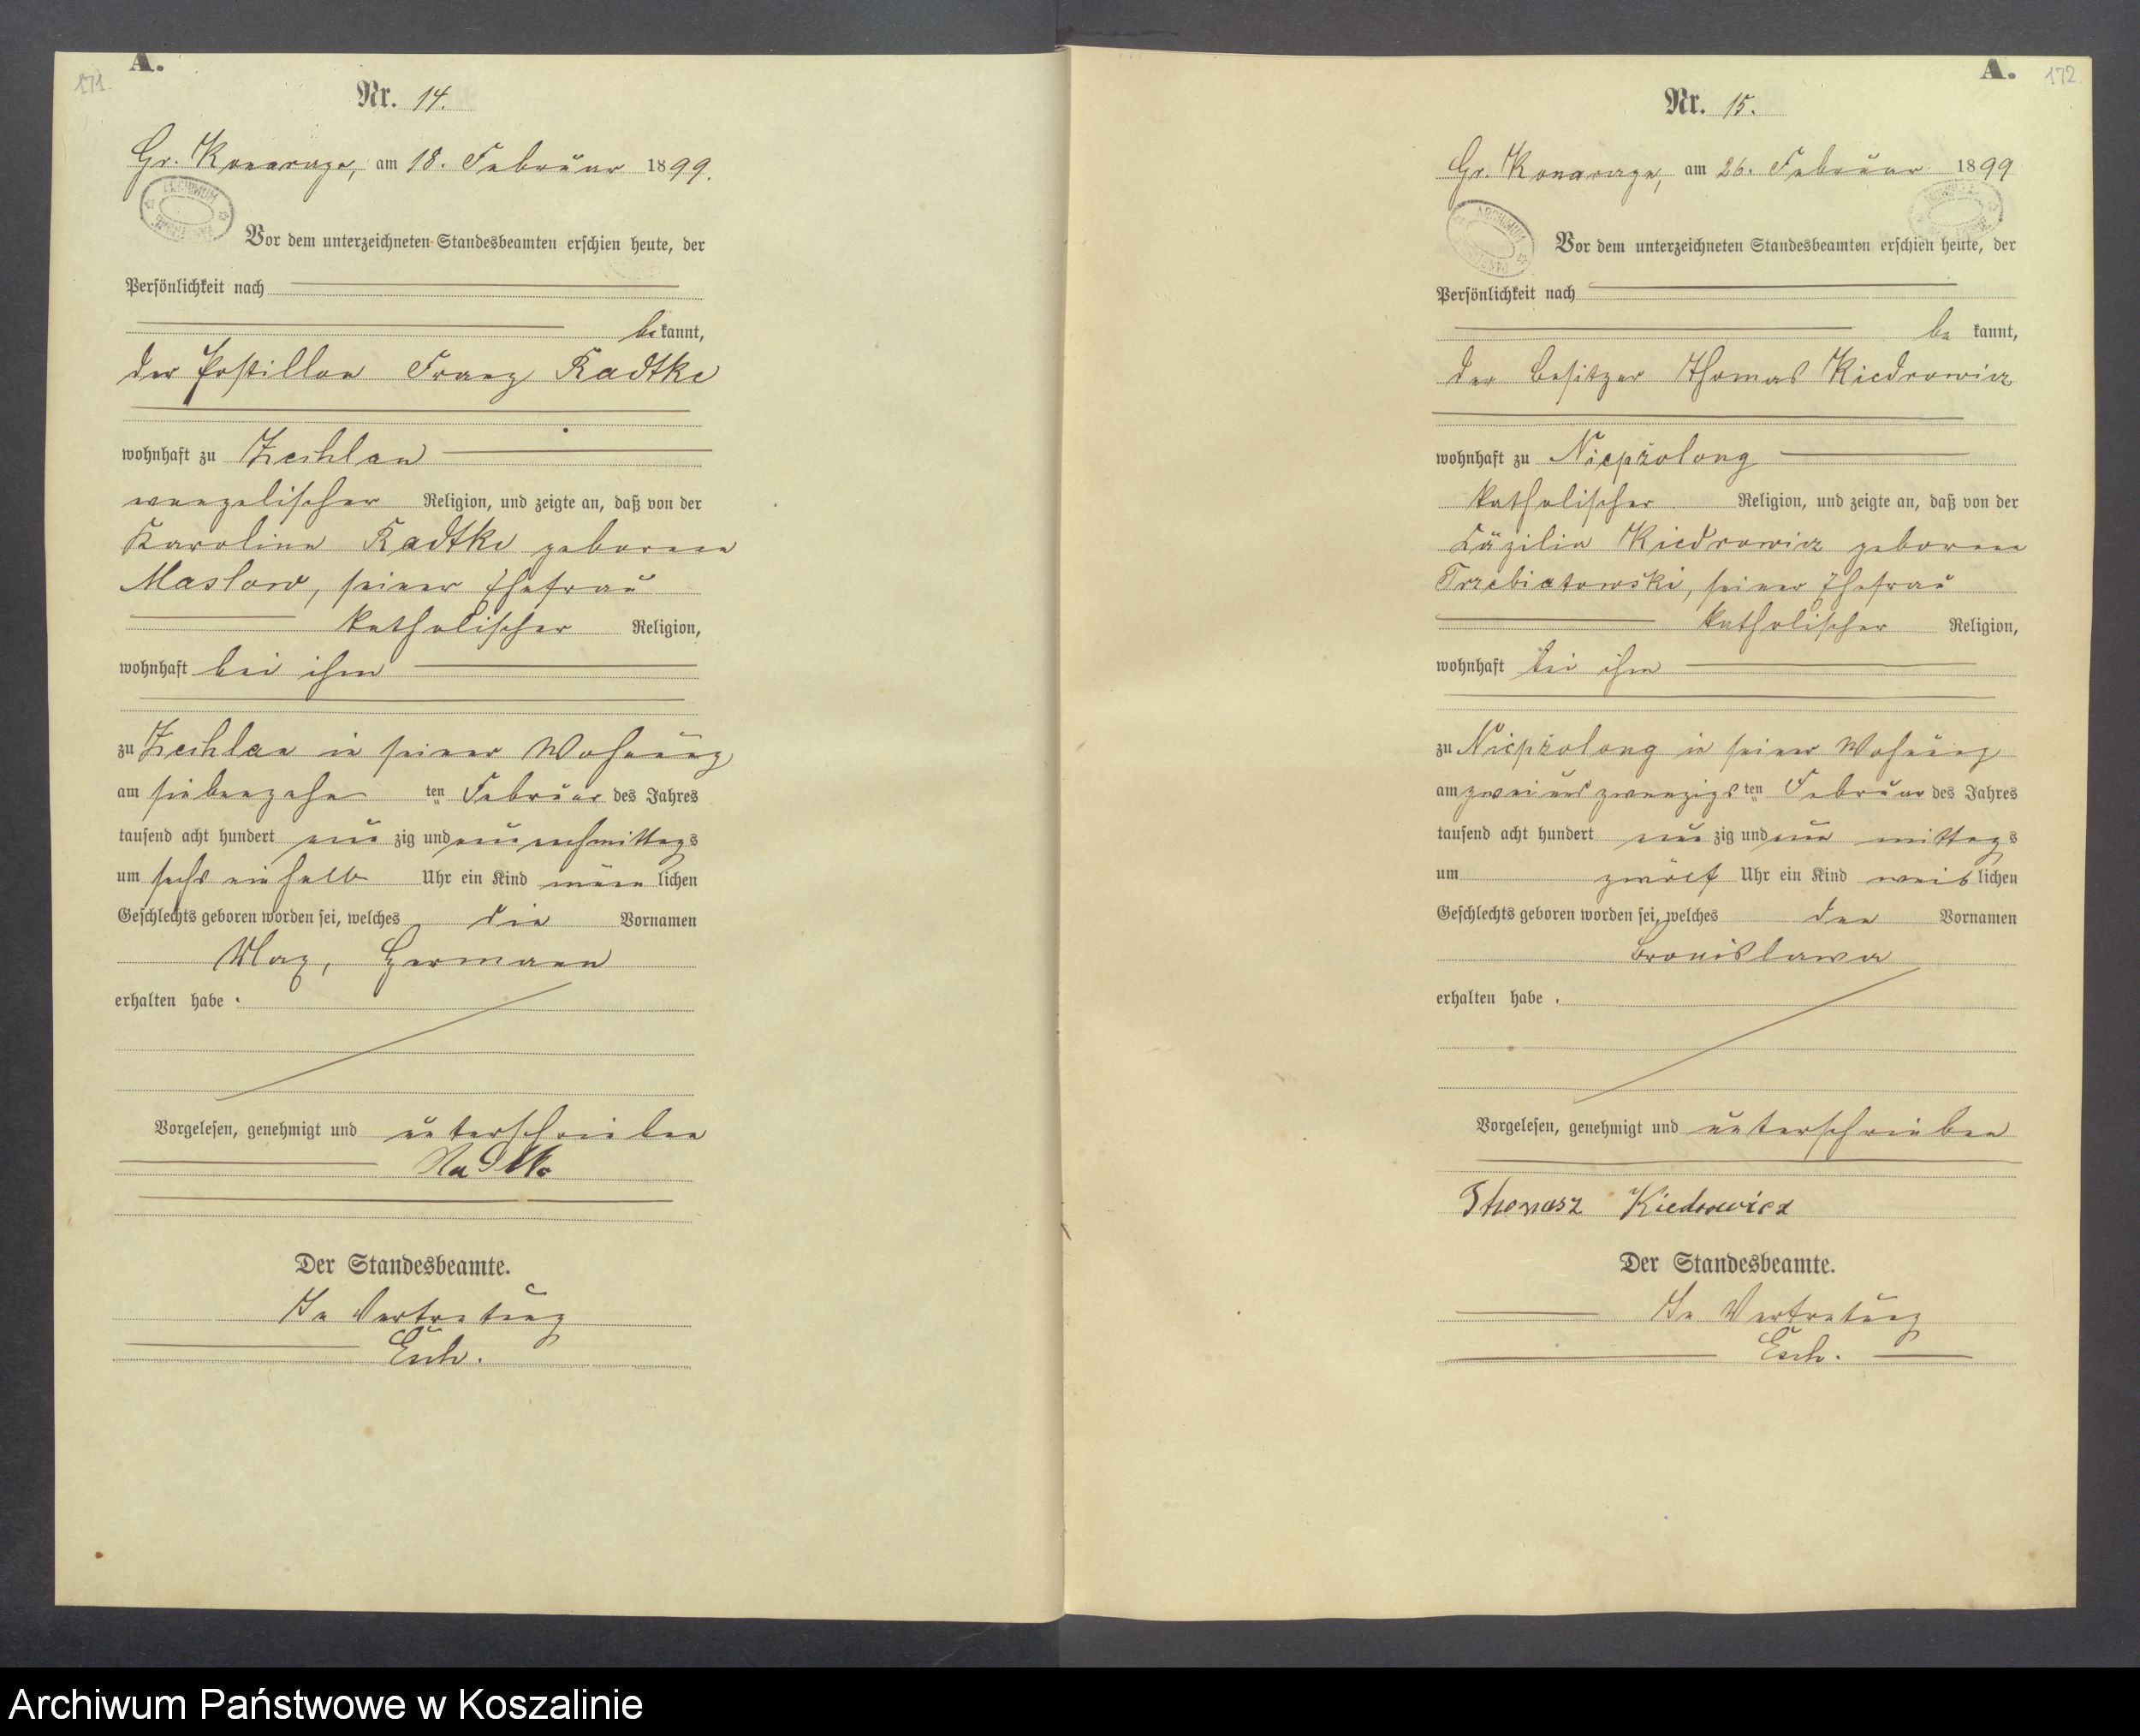 171.
A.
Nr. 14.
Gr. Konarzyn, am 18. Februar 1899.
ARCHIWUM
Vor dem unterzeichneten Standesbeamten erschien heute, der
Persönlichkeit nach
bekannt,
der Postillon Franz Radtke
wohnhaft zu Zechlau
evangelischer Religion, und zeigte an, daß von der
Karoline Radtke geborenen
Maslow, seiner Ehefrau
katholischer Religion,
wohnhaft bei ihm
zu Zechlau in seiner Wohnung
am siebenzehn ten Februar des Jahres
tausend acht hundert neun zig und neun nachmittags
um sechs ein halb Uhr ein Kind männ lichen
Geschlechts geboren worden sei, welches die Vornamen
Max, Hermann
erhalten habe.
Vorgelesen, genehmigt und unterschrieben
Radtke
Der Standesbeamte.
In Vertretung
Esch.
A.
172
Nr. 15.
Gr. Konarzyn, am 26. Februar 1899
ARCHIWUM
Vor dem unterzeichneten Standesbeamten erschien heute, der
Persönlichkeit nach
be kannt,
der Besitzer Thomas Kiedrowicz
wohnhaft zu Niepszolong
katholischer Religion, und zeigte an, daß von der
Cäzilia Kiedrowicz geborenen
Trzebiatowski, seiner Ehefrau
katholischer Religion,
wohnhaft bei ihm
zu Niepszolong in seiner Wohnung
am zweiundzwanzigs ten Februar des Jahres
tausend acht hundert neun zig und neun mittags
um zwölf Uhr ein Kind weib lichen
Geschlechts geboren worden sei, welches den Vornamen
Bronislawa
erhalten habe.
Vorgelesen, genehmigt und unterschrieben
Thomasz Kiedrowicz
Der Standesbeamte.
In Vertretung
Esch.
Archiwum Państwowe w Koszalinie